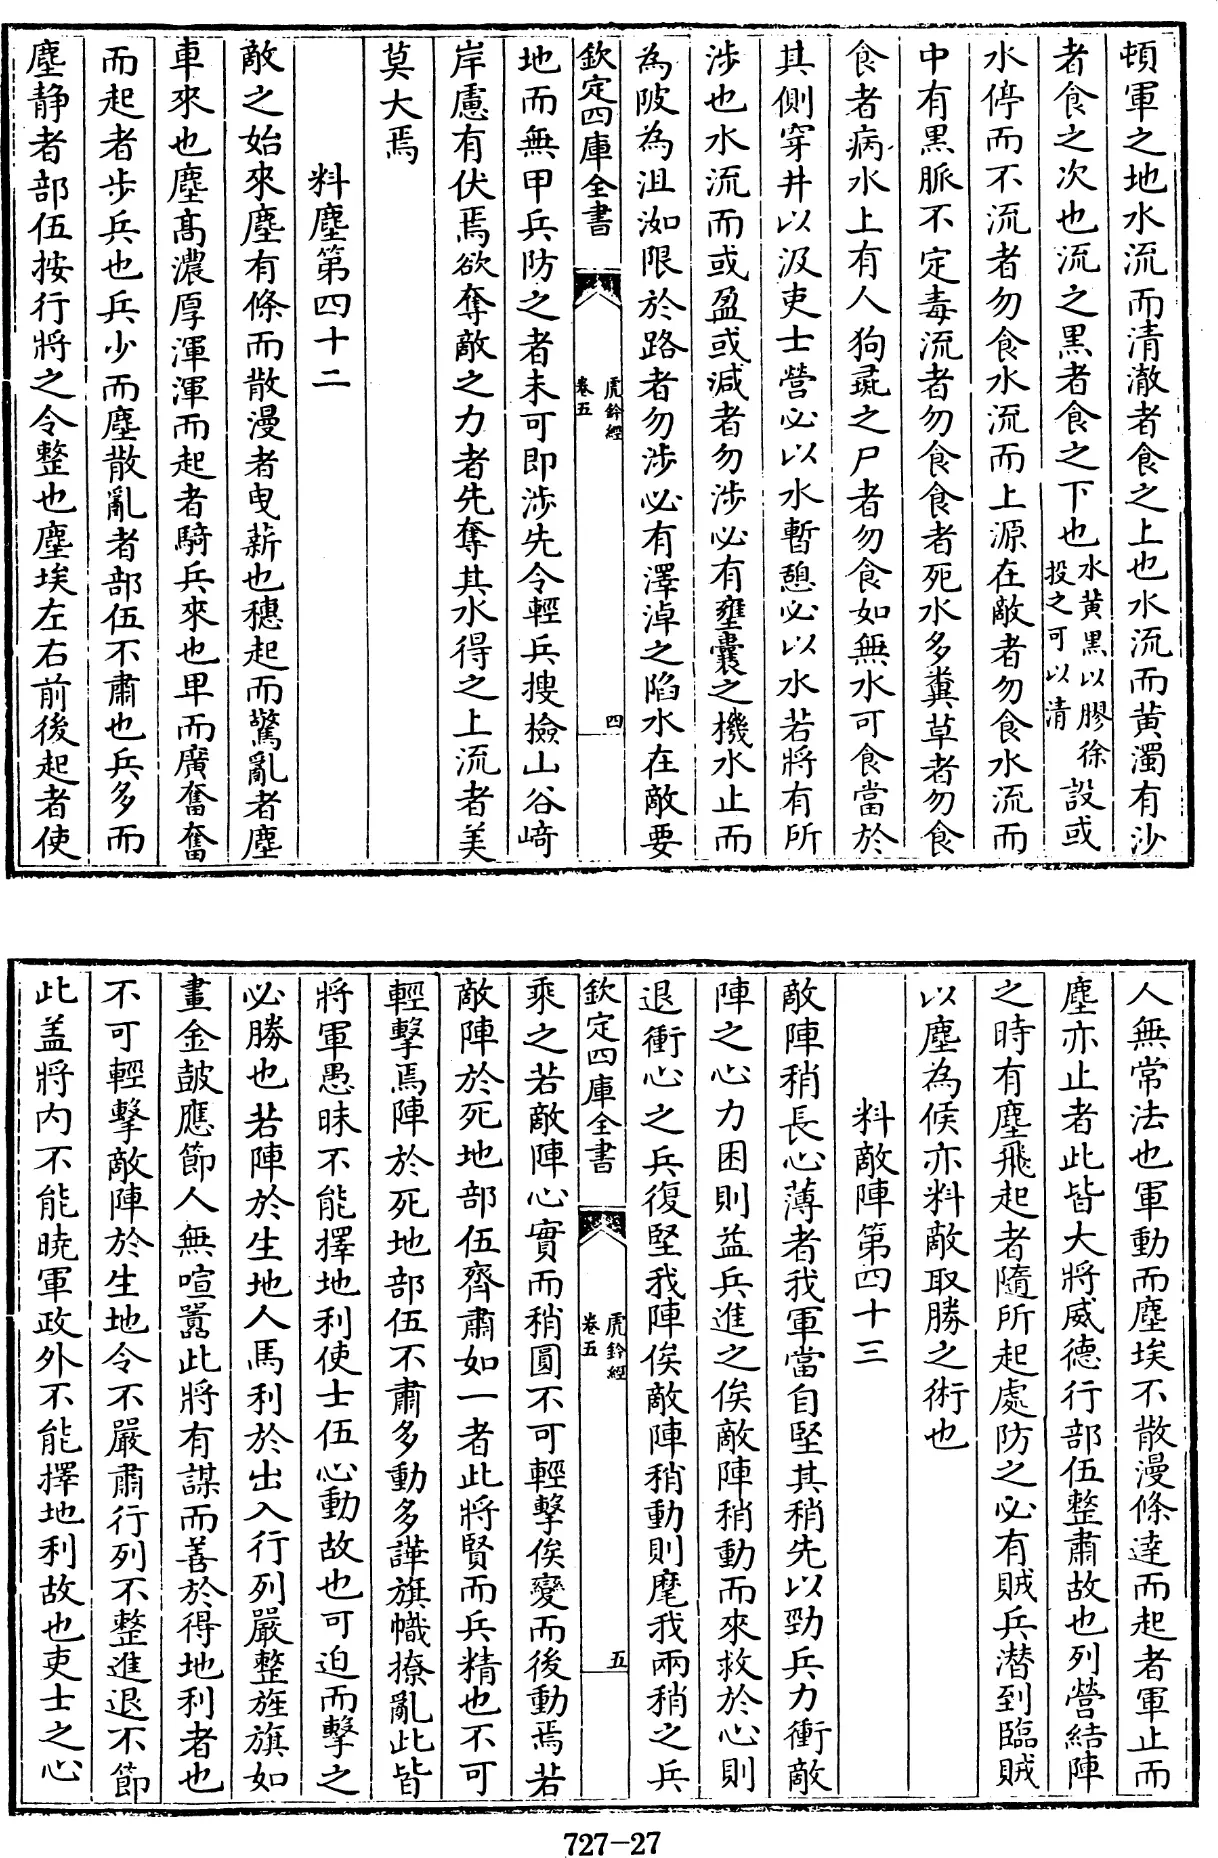 頓軍之地水流而清澈者食之上也水流而黄濁有沙
者食之次也流之黑者食之下也水黄黑以膠徐投之可以清設或
水停而不流者勿食水流而上源在敵者勿食水流而
中有黑脈不定毒流者勿食食者死水多糞草者勿食
食者病水上有人狗彘之尸者勿食如無水可食當於
其側穿井以汲吏士營必以水暫憩必以水若將有所
涉也水流而或盈或減者勿涉必有壅囊之機水止而
為陂為沮洳限於路者勿涉必有澤淖之陷水在敵要
欽定四庫全書 虎鈐經 卷五 四
地而無甲兵防之者未可即涉先令輕兵搜檢山谷﨑
岸慮有伏焉欲奪敵之力者先奪其水得之上流者美
莫大焉
料塵第四十二
敵之始來塵有條而散漫者曳薪也穗起而驚亂者塵
車來也塵髙濃厚渾渾而起者騎兵來也卑而廣奮奮
而起者步兵也兵少而塵散亂者部伍不肅也兵多而
塵静者部伍按行將之令整也塵埃左右前後起者使
人無常法也軍動而塵埃不散漫條達而起者軍止而
塵亦止者此皆大將威德行部伍整肅故也列營結陣
之時有塵飛起者隨所起處防之必有賊兵潛到臨賊
以塵為候亦料敵取勝之術也
料敵陣第四十三
敵陣稍長心薄者我軍當自堅其稍先以勁兵力衝敵
陣之心力困則益兵進之俟敵陣稍動而來救於心則
退衝心之兵復堅我陣俟敵陣稍動則麾我兩稍之兵
欽定四庫全書 虎鈐經 卷五 五
乘之若敵陣心實而稍圓不可輕擊俟變而後動焉若
敵陣於死地部伍齊肅如一者此將賢而兵精也不可
輕擊焉陣於死地部伍不肅多動多譁旗幟撩亂此皆
將軍愚昧不能擇地利使士伍心動故也可迫而擊之
必勝也若陣於生地人馬利於出入行列嚴整旌旗如
畫金鼓應節人無喧囂此將有謀而善於得地利者也
不可輕擊敵陣於生地令不嚴肅行列不整進退不節
此盖將内不能曉軍政外不能擇地利故也吏士之心
727-27